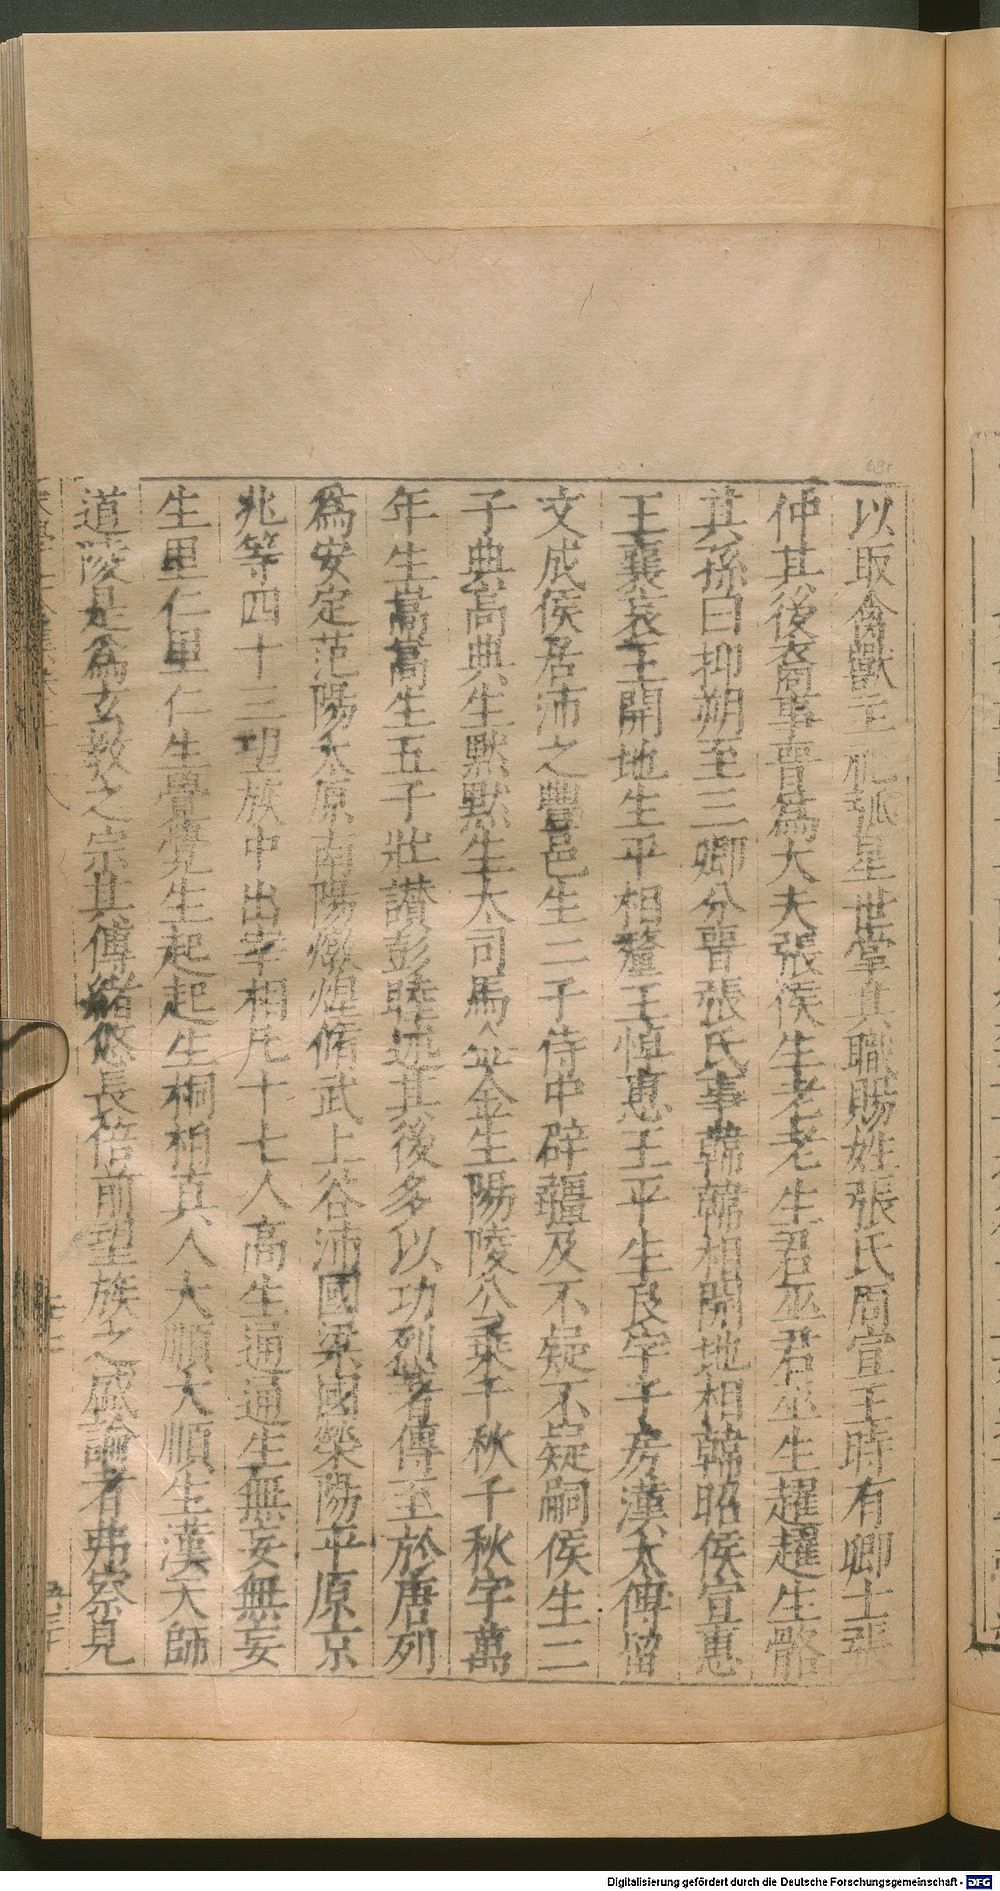 以取禽獸主祀弧星世掌其職賜姓張氏周宣王時有卿士張
仲其後裔事晉為大夫張侯生老老生君巫君巫生趯趯生骼
其孫曰抑朔至三卿分晉張氏事韓韓相開地相韓昭侯宣惠
王襄哀王開地生平相釐王悼惠王平生良字子房漢太傅留
文成侯居沛之豐邑生二子侍中辟疆及不疑不疑嗣侯生二
子典高典生默默生大司馬金金生陽陵公乗千秋千秋字萬
年生嵩嵩生五子壯讚彭睦述其後多以功烈著傳至於唐列
為安定范陽太原南陽燉煌脩武上谷沛國梁國滎陽平原京
兆等四十三望放中出宰相凡十七人高生通通生無妄無妄
生里仁里仁生覺覺生起起生桐栢真人大順大順生漢天師
道陵是為玄教之宗其傳緒悠長倍前望族之盛論者弗察見
Digitalisierung gefördert durch die Deutsche Forschungsgemeinschaft - DFG